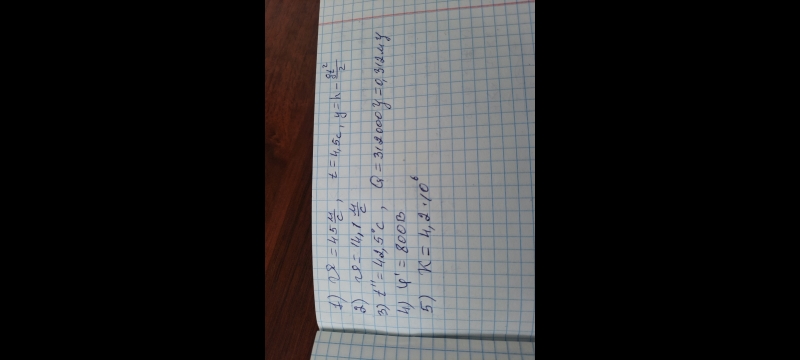 1) υ = 45 м/с, t = 4,5с, y = h - gt²/2
2) υ = 14,1 м/с
3) t'' = 42,5°C, Q = 312000 У = 0,312 МУ
4) φ' = 800В
5) K = 4,2·10⁶